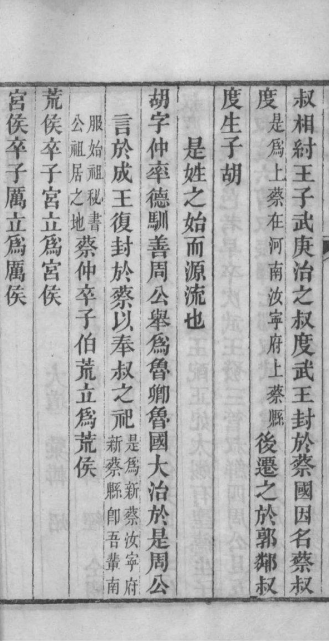 叔相紂王子武庚治之叔度武王封於蔡國因名蔡叔
度是爲上蔡在河南汝寧府上蔡縣後遷之於郭鄰叔
度生子胡
是姓之始而源流也
胡字仲率德馴善周公舉爲魯卿魯國大治於是周公
言於成王復封於蔡以奉叔之祀是爲新蔡汝寧府新蔡縣卽吾輩南
服始祖秘書公祖居之地蔡仲卒子伯荒立爲荒侯
荒侯卒子宮立爲宮侯
宮侯卒子厲立爲厲侯